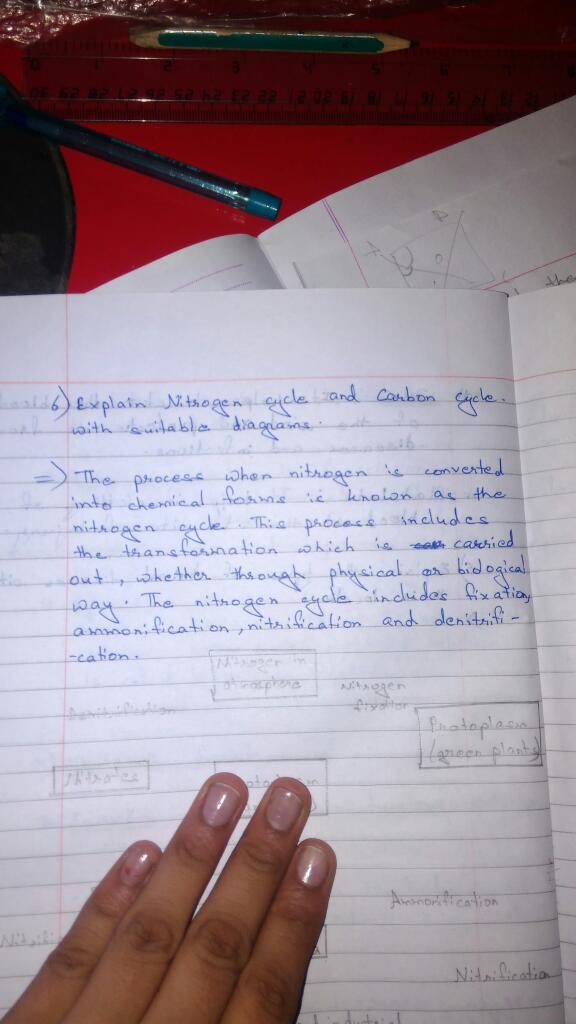 6) Explain Nitrogen cycle and Carbon cycle.
with suitable diagrams.
=> The process when nitrogen is converted
into chemical forms is known as the
nitrogen cycle. This process includes
the transformation which is carried
out, whether through physical or biological
way. The nitrogen cycle includes fixation,
ammonification, nitrification and denitrifi-
-cation.
Nitrogen in
atmosphere
Nitrogen
fixation
Denitrification
Protoplasm
(green plants)
Nitrates
Ammonification
Nitrification